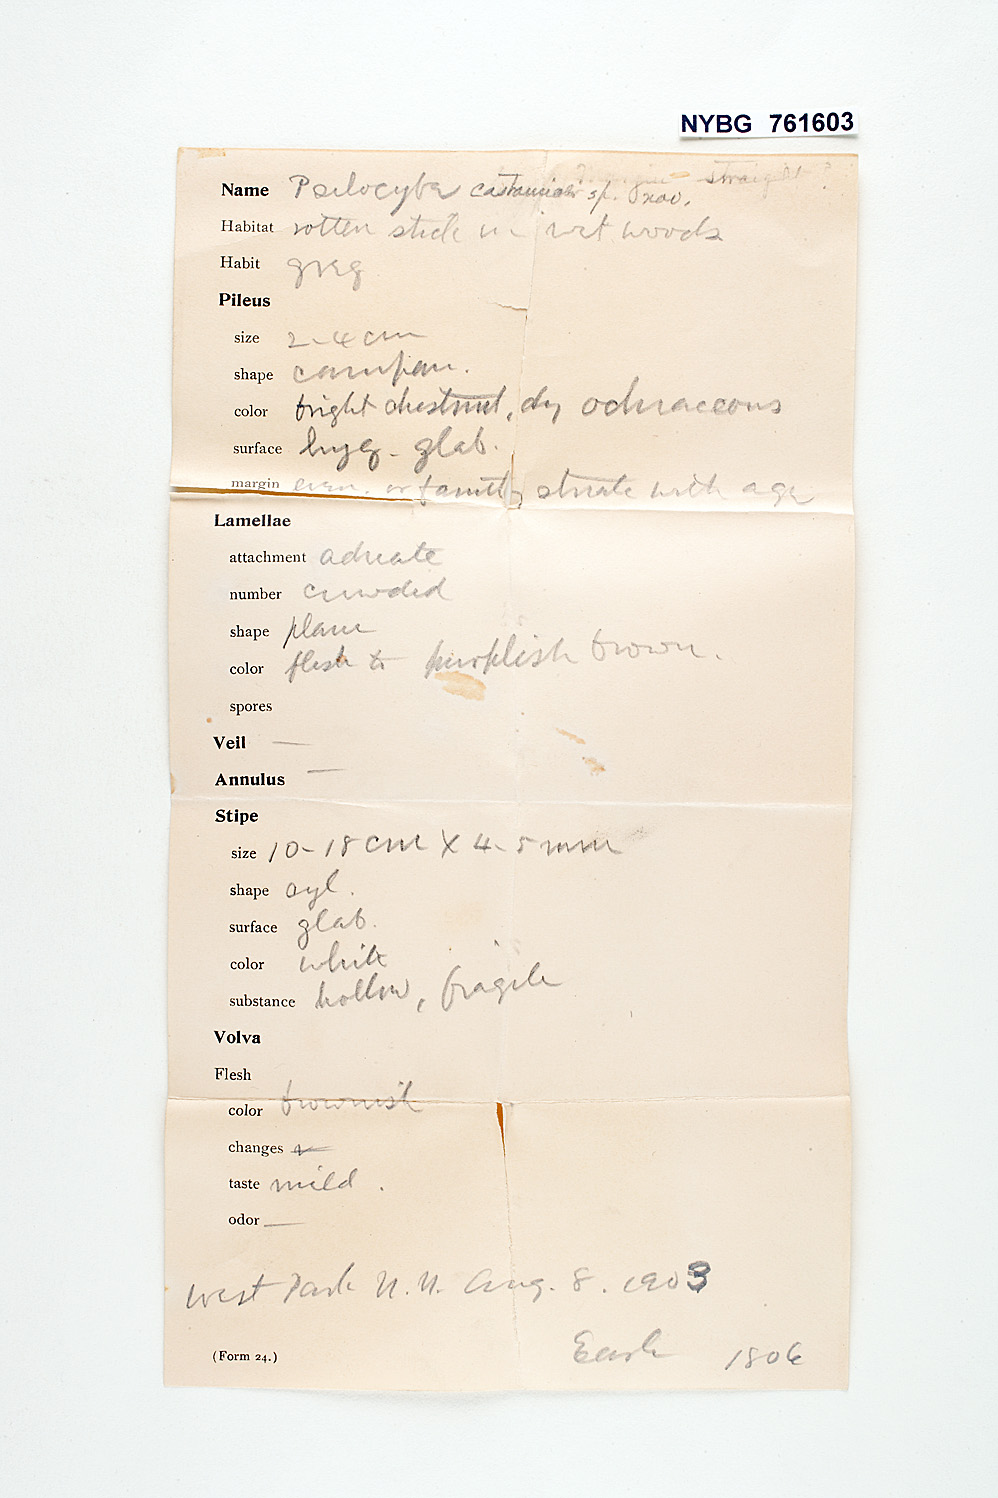 NYBG 761603
margin straight ?
Name Psilocybe sp. nov.
Habitat rotten stick in wet woods
Habit greg
Pileus
size 2-4 cm
shape campan.
color bright chestnut, dry ochraceous
surface hyg. glab.
margin even. or faintly striate with age
Lamellae
attachment adnate
number crowded
shape plane
color flesh to purplish brown.
spores
Veil —
Annulus —
Stipe
size 10-18 cm X 4-5 mm
shape cyl.
surface glab.
color white
substance hollow, fragile
Volva
Flesh
color brownish
changes —
taste mild.
odor —
West Park N.Y. Aug. 8. 1903
(Form 24.) Earle 1806